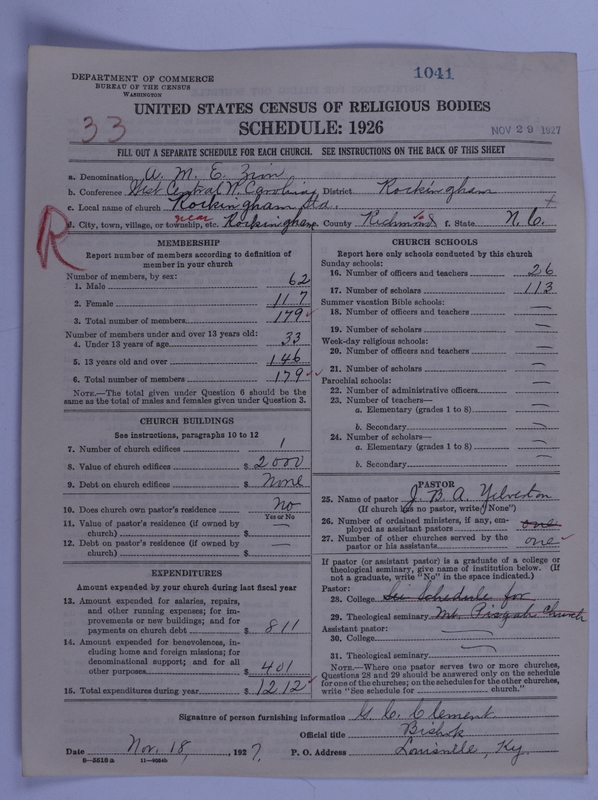 1041
DEPARTMENT OF COMMERCE
BUREAU OF THE CENSUS
WASHINGTON
UNITED STATES CENSUS OF RELIGIOUS BODIES
33
SCHEDULE: 1926
NOV 29 1927
FILL OUT A SEPARATE SCHEDULE FOR EACH CHURCH. SEE INSTRUCTIONS ON THE BACK OF THIS SHEET
a. Denomination A. M. E. Zion
b. Conference West Central N. Carolina District Rockingham
c. Local name of church Rockingham Sta.
R
d. City, town, village, or township, etc. near Rockingham e. County Richmond f. State N. C.
MEMBERSHIP
Report number of members according to definition of
member in your church
Number of members, by sex:
1. Male 62
2. Female 117
3. Total number of members 179
Number of members under and over 13 years old:
4. Under 13 years of age 33
5. 13 years old and over 146
6. Total number of members 179
NOTE.—The total given under Question 6 should be
same as the total of males and females given under Question 3.
CHURCH BUILDINGS
See instructions, paragraphs 10 to 12
7. Number of church edifices 1
8. Value of church edifices $ 2000
9. Debt on church edifices $ None
10. Does church own pastor's residence No
Yes or No
11. Value of pastor's residence (if owned by
church) $ —
12. Debt on pastor's residence (if owned by
church) $ —
EXPENDITURES
Amount expended by your church during last fiscal year
13. Amount expended for salaries, repairs,
and other running expenses; for im-
provements or new buildings; and for
payments on church debt $ 811
14. Amount expended for benevolences, in-
cluding home and foreign missions; for
denominational support; and for all
other purposes $ 401
15. Total expenditures during year $ 1212
CHURCH SCHOOLS
Report here only schools conducted by this church
Sunday schools:
16. Number of officers and teachers 26
17. Number of scholars 113
Summer vacation Bible schools:
18. Number of officers and teachers —
19. Number of scholars —
Week-day religious schools:
20. Number of officers and teachers —
21. Number of scholars —
Parochial schools:
22. Number of administrative officers —
23. Number of teachers—
a. Elementary (grades 1 to 8) —
b. Secondary —
24. Number of scholars—
a. Elementary (grades 1 to 8) —
b. Secondary —
PASTOR
25. Name of pastor J. B. A. Yelverton
(If church has no pastor, write "None")
26. Number of ordained ministers, if any, em-
ployed as assistant pastors one
27. Number of other churches served by the
pastor or his assistants one
If pastor (or assistant pastor) is a graduate of a college or
theological seminary, give name of institution below. (If
not a graduate, write "No" in the space indicated.)
Pastor:
28. College See Schedule for
29. Theological seminary Mt. Pisgah Church
Assistant pastor:
30. College —
31. Theological seminary
NOTE.—Where one pastor serves two or more churches,
Questions 28 and 29 should be answered only on the schedule
for one of the churches; on the schedules for the other churches,
write "See schedule for ______ church."
Signature of person furnishing information G. C. Clement
Official title Bishop
Date Nov. 18, 1927. P. O. Address Louisville, Ky.
8—5518a